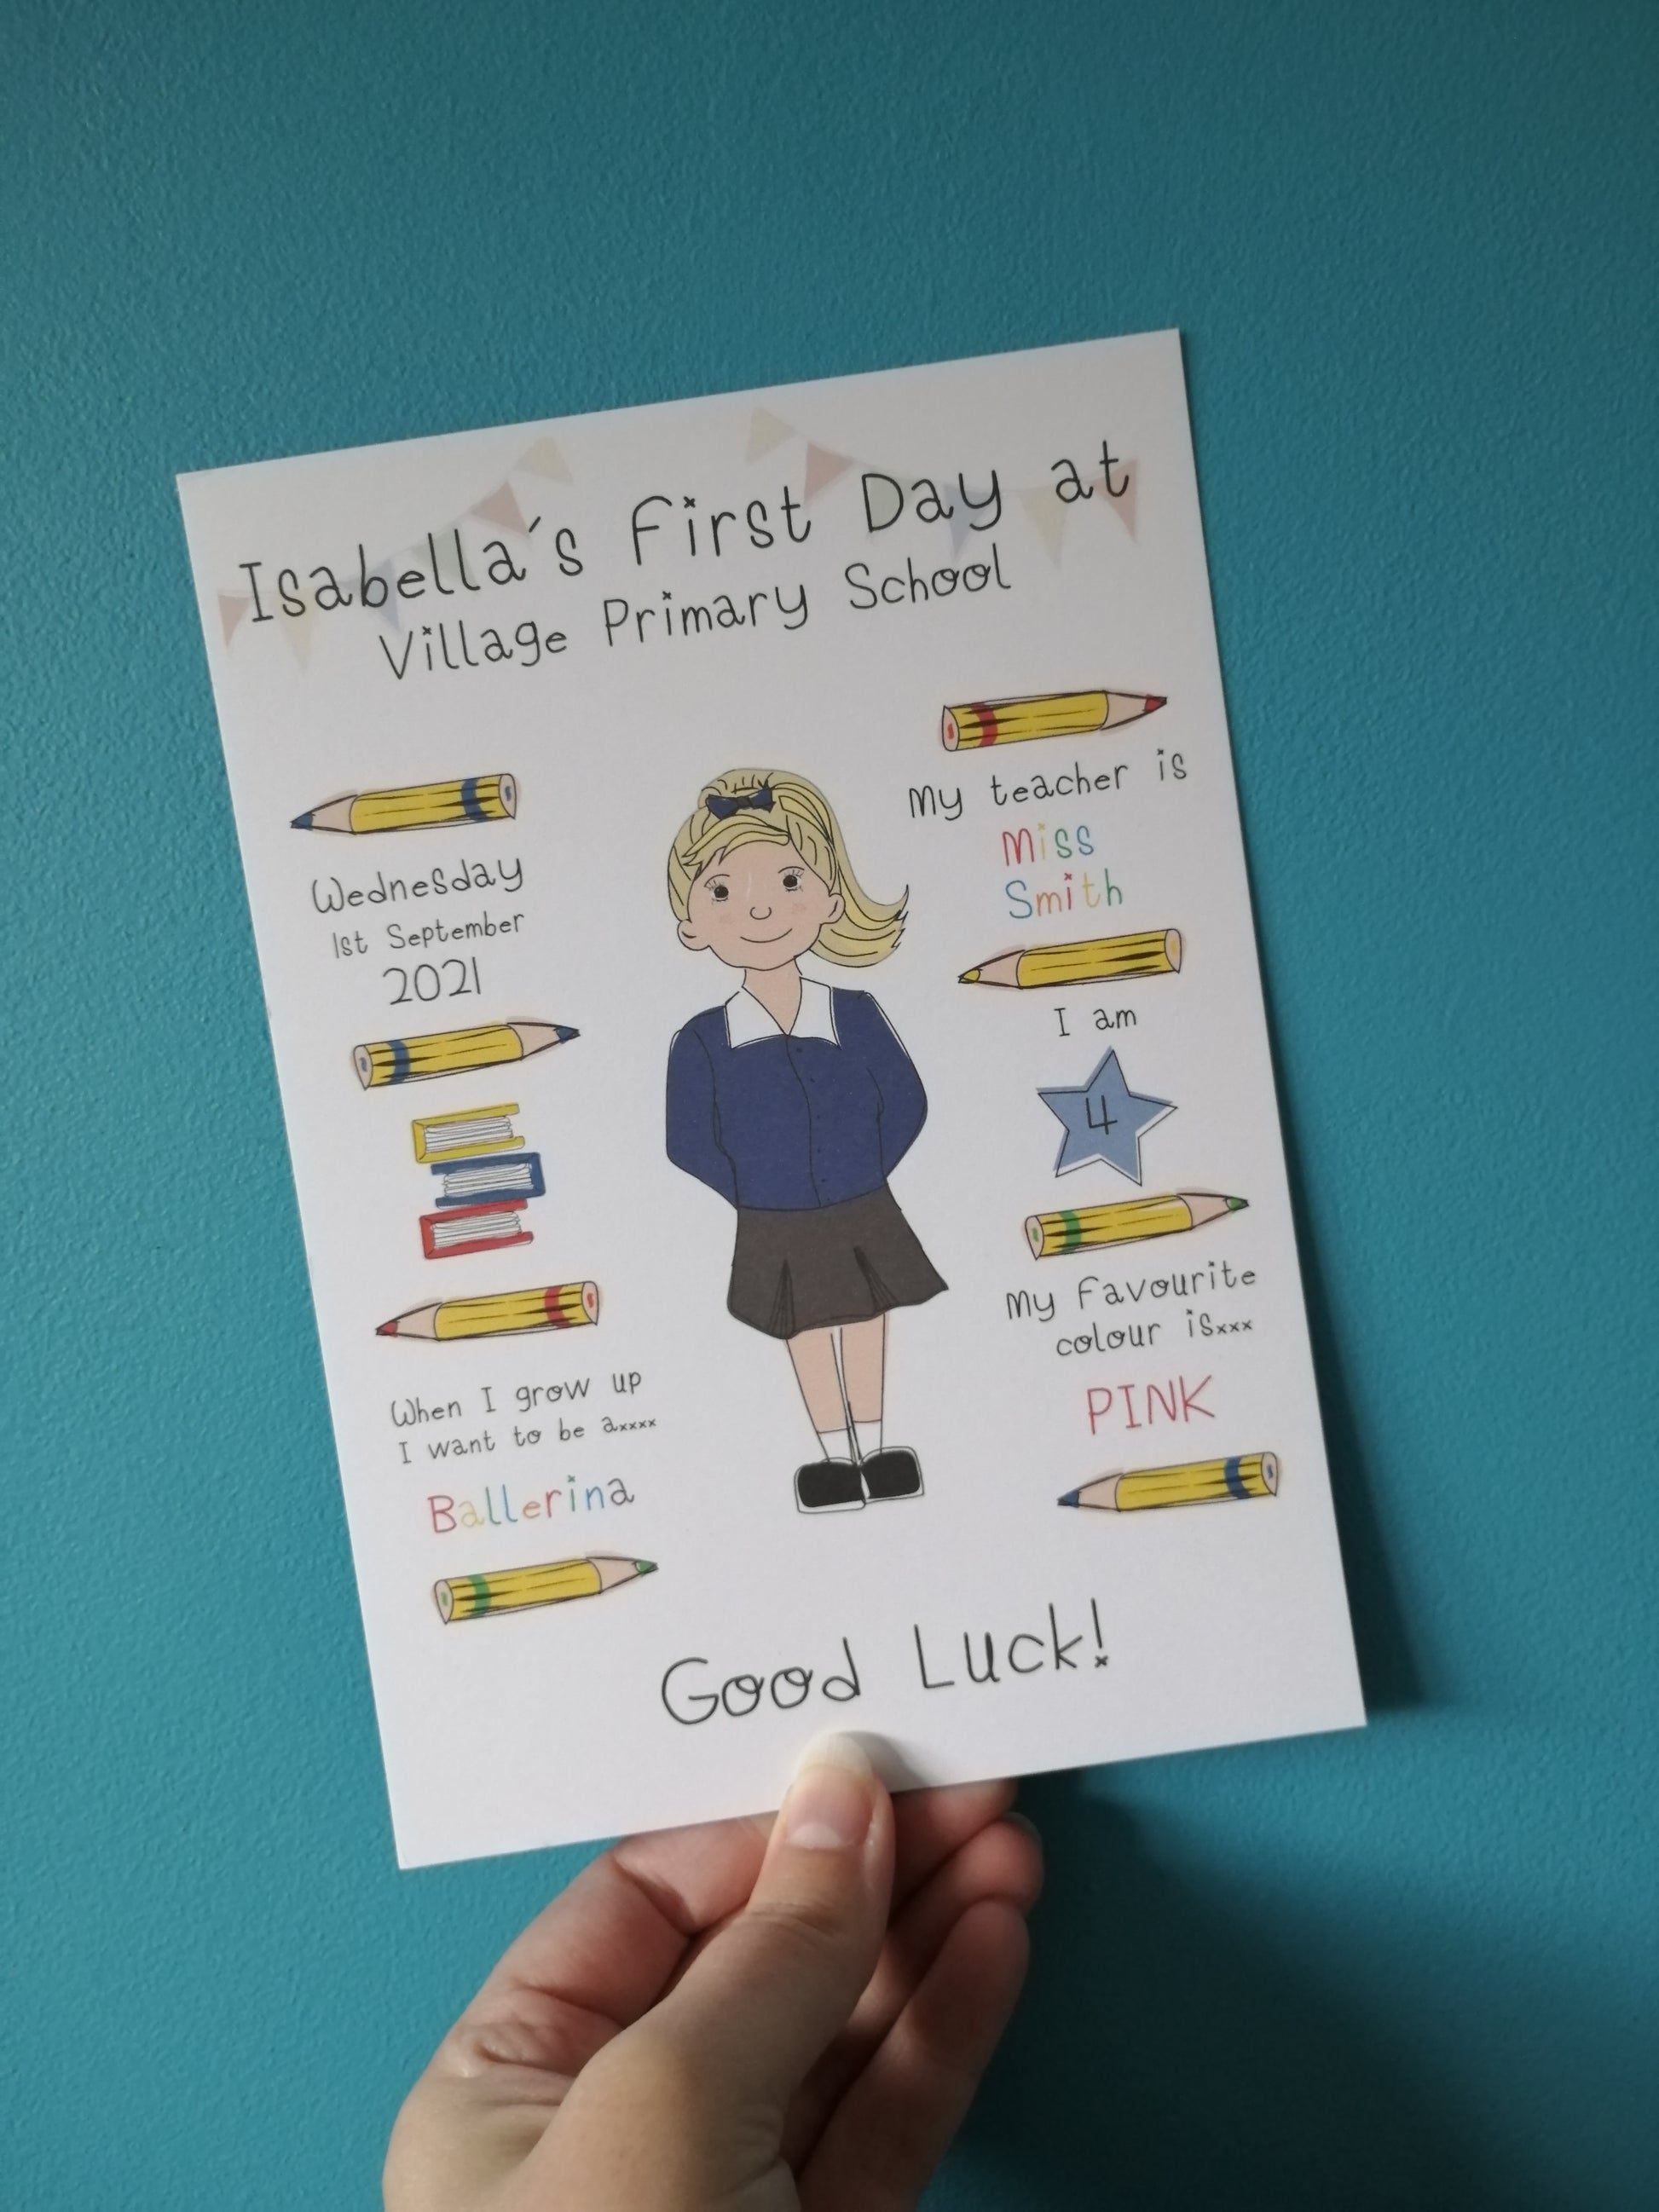 Isabella's First Day at
Village Primary School
Wednesday
1st September
2021
When I grow up
I want to be axxxx
Ballerina
My teacher is
Miss
Smith
I am
4
My favourite
colour isxxx
PINK
Good Luck!